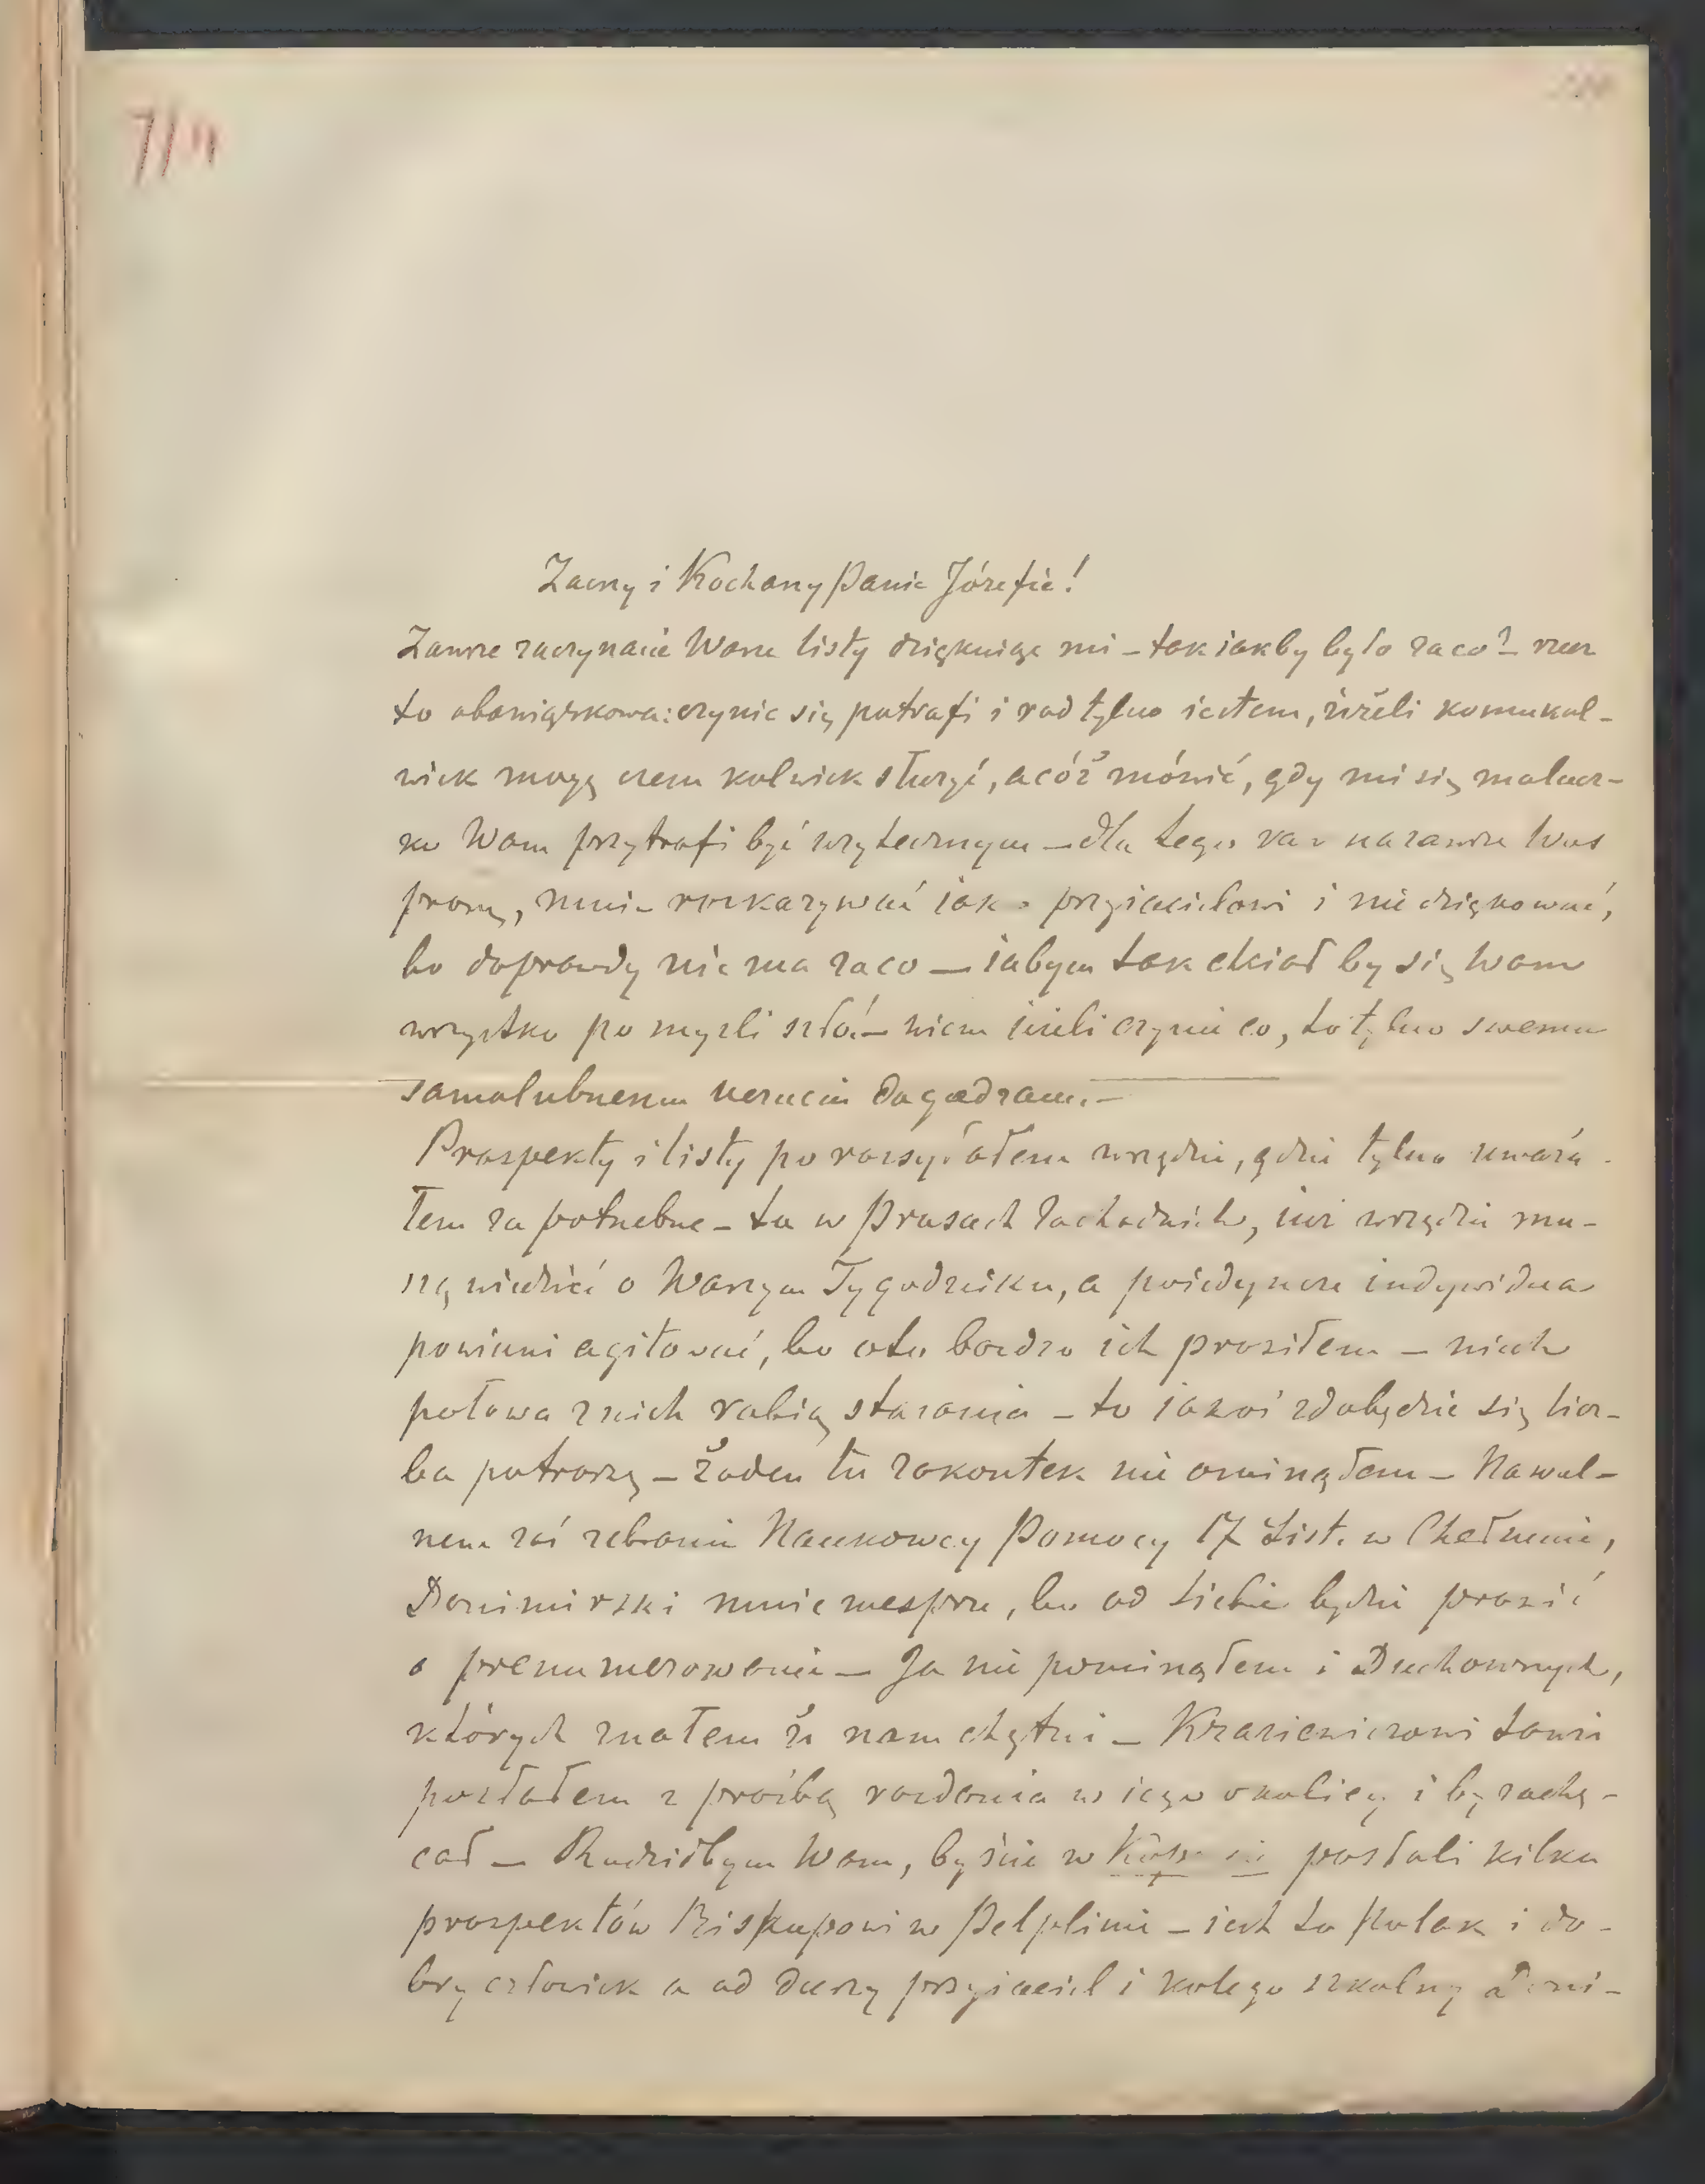 7/11
Zacny i Kochany Panie Józefie!
Zawsze zaczynacie Wasze listy dziękując mi – tak iakby było zaco? –
to obowiązkowo czynić się potrafi i rad tylko iestem, ieżeli komukol-
wiek mogę czem kolwiek służyć, a cóż mówić, gdy mi się malucz-
ko Wam przytrafi być użytecznym – dla tego raz nazawsze Was
proszę, mnie rozkazywać iako przyiacielowi i nie dziękować,
bo doprawdy nie ma zaco – iabym tak chciał by się Wam
wszystko po myśli szło – niem ieżeli czynię co, to tylko swemu
samolubnemu uczuciu dogadzam. –
Prospekty i listy porozsyłałem wszędzie, gdzie tylko uważa-
łem za potrzebne – tu w Prusach Zachodnich, iuż wszędzie mu-
szą wiedzieć o Waszym Tygodniku, a poiedyncze indywidua
powinni agitować, bo oto bardzo ich prosiłem – niech
połowa z nich robią starania – to iakoś zdobędzie się licz-
ba potrzeby – żaden tu zakontek nie ominąłem – Na wal-
nem zaś zebraniu Naukowey Pomocy 17 List. w Chełmnie,
Donimirski mnie wesprze, bo od siebie będzie prosić
o prenumerowanie – Ja nie pominąłem i Duchownych,
których znałem że nam chętni – Kraziewiczowi
posłałem z prośbą rozdania w iego okolicy i by zachę-
cał – Radziłbym Wam, byście w posłali kilka
prospektów Biskupowi w Pelplinie – iest to Polak i do-
bry człowiek a od duszy przyiaciel i kolega szkolny